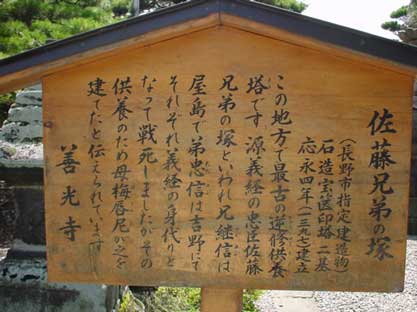 佐藤兄弟の塚
（長野市指定建造物）
石造宝医印塔二基
応永四年（一三九七）建立
この地方で最古の逆修供養
塔です 源義経の忠臣佐藤
兄弟の塚といわれ兄継信は
屋島で弟忠信は吉野にて
それぞれ義経の身代りと
なって戦死しましたがその
供養のため母梅唇尼が之を
建てたと伝えられています
善光寺